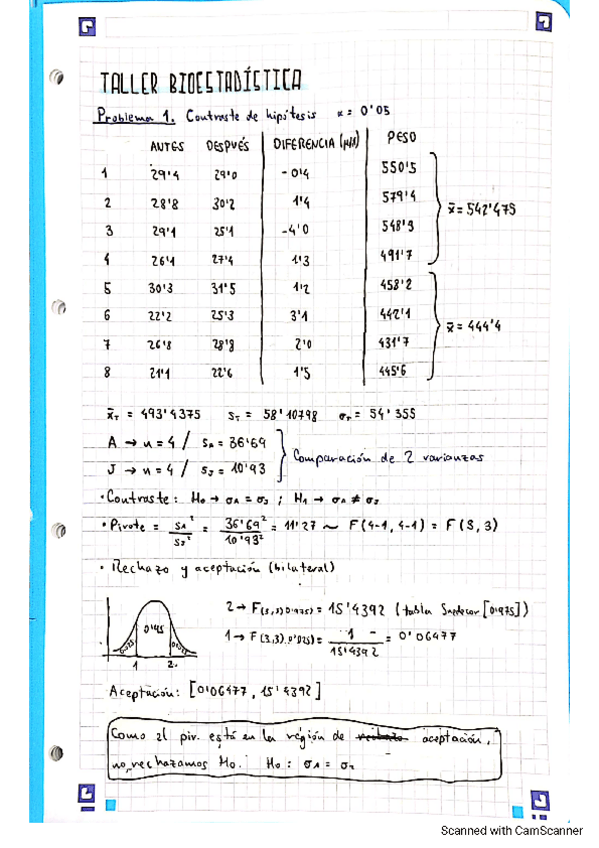 TALLER BIOESTADÍSTICA
Problema 1. Contraste de hipótesis α = 0'05
ANTES DESPUÉS DIFERENCIA (μ/s) PESO
1 29'4 29'0 -0'4 550'5
2 28'8 30'2 1'4 579'4
x̄ = 542'475
3 29'1 25'1 -4'0 548'3
4 26'1 27'4 1'3 491'7
5 30'3 31'5 1'2 458'2
6 22'2 25'3 3'1 442'1
x̄ = 444'4
7 26'8 28'8 2'0 431'7
8 21'1 22'6 1'5 445'6
x̄T = 493'4375 sT = 58'10798 σT = 54'355
A → n = 4 / sA = 36'69
J → n = 4 / sJ = 10'93
Comparación de 2 varianzas
· Contraste: H0 → σ1 = σ2 ; H1 → σ1 ≠ σ2
· Pivote = s1² / s2² = 36'69² / 10'93² = 11'27 ~ F(4-1, 4-1) = F(3, 3)
· Rechazo y aceptación (bilateral)
2 → F(3,3)0'975) = 15'4392 (tabla Snedecor [0'975])
0'95
0'025 0'025
1 → F(3,3),0'025) = 1 / 15'4392 = 0'06477
1 2
Aceptación: [0'06477, 15'4392]
Como el piv. está en la región de rechazo aceptación,
no rechazamos H0. H0: σ1 = σ2
Scanned with CamScanner